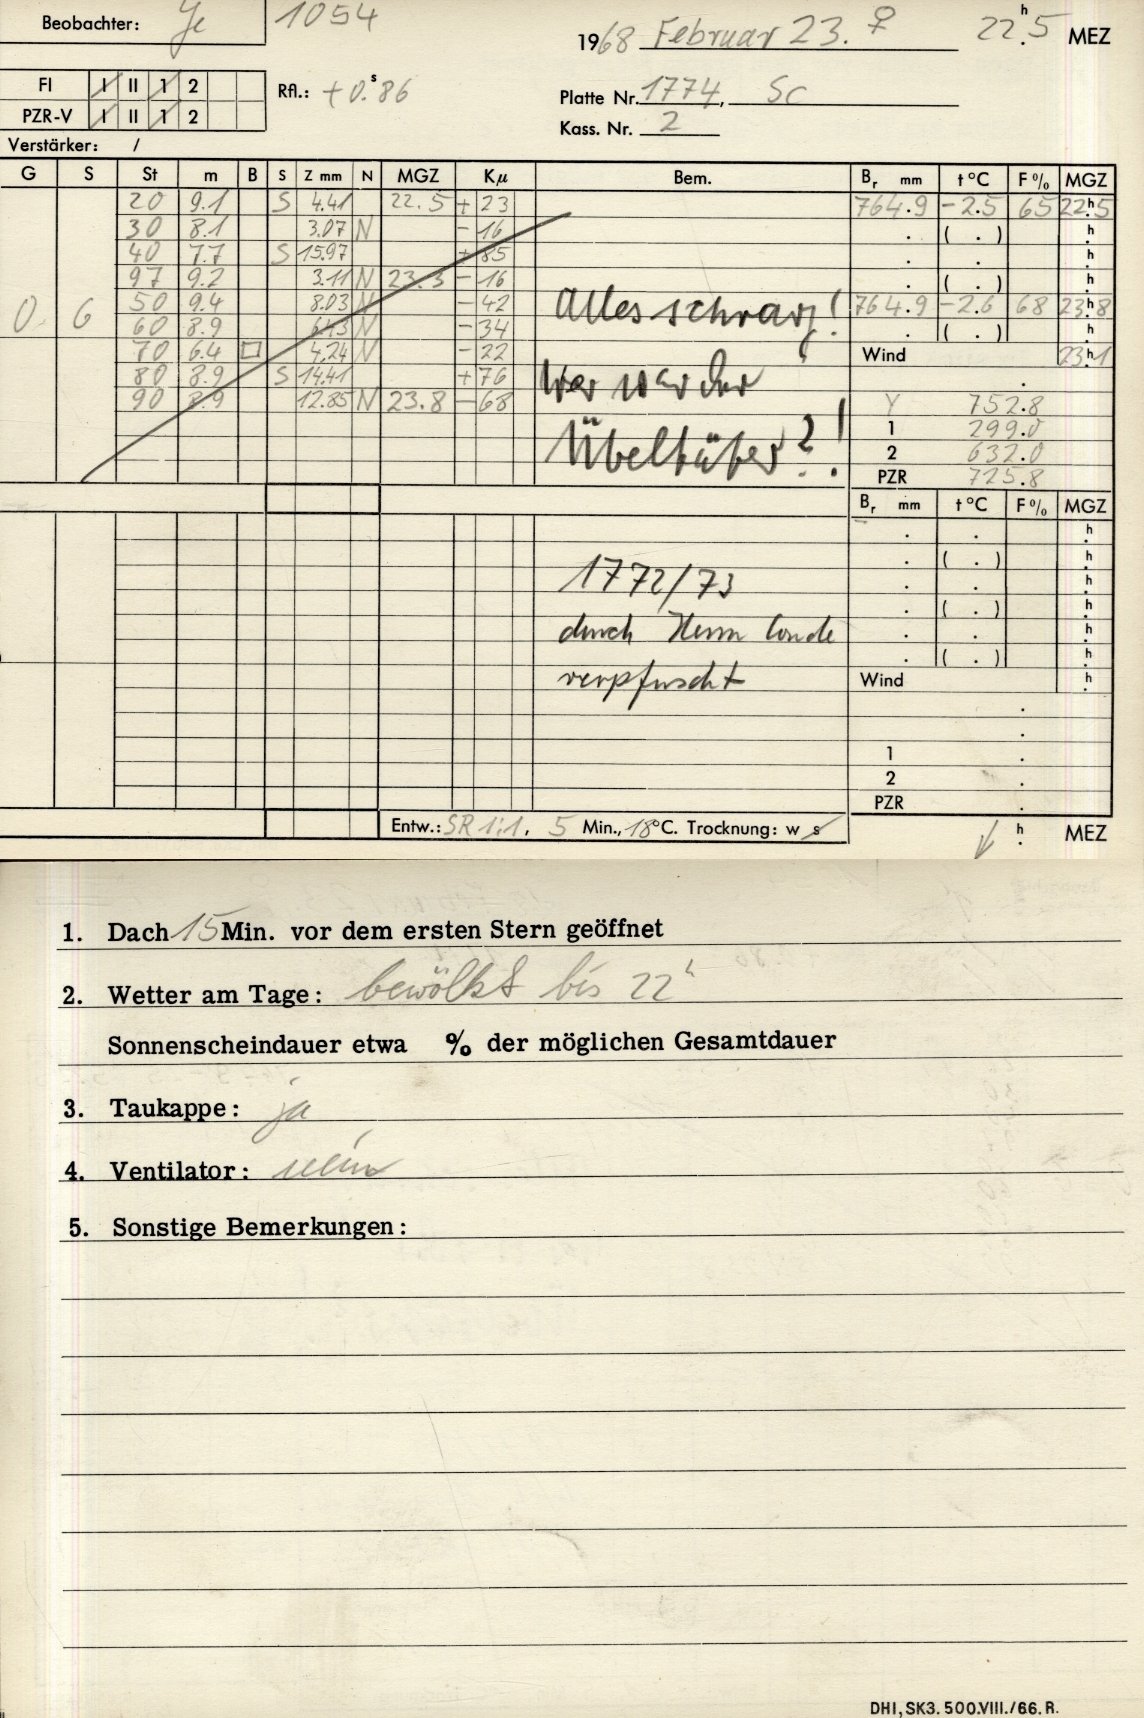 Beobachter: Je 1054
1968 Februar 23. ♀ 22.h5 MEZ
FI I II 1 2
Rfl.: +0.s86
Platte Nr. 1774, Sc
PZR-V I II 1 2
Kass. Nr. 2
Verstärker: /
G S St m B S Z mm N MGZ Kμ Bem. Br mm t °C F % MGZ
20 9.1 S 4.41 22.5 +23 764.9 -2.5 65 22.h5
30 8.1 3.07 N -16 . ( . ) h
40 7.7 S 15.97 +85 . . h
97 9.2 3.11 N 23.3 -16 . ( . ) h
0. 6 50 9.4 8.03 N -42 Alles schräg! 764.9 -2.6 68 23.h8
60 8.9 6.13 N -34 . ( . ) h
70 6.4 □ 4.24 N -22 Wind 23.h1
80 8.9 S 14.41 +76 Wer war der .
90 8.9 12.85 N 23.8 -68 Y 752.8
1 299.0
Übeltäter?! 2 632.0
PZR 725.8
Br mm t °C F % MGZ
. . h
. ( . ) h
1772/73 . . h
. ( . ) h
durch Herrn . . h
. ( . ) h
verpfuscht Wind h
.
.
1 .
2 .
PZR .
Entw.: SR 1:1, 5 Min., 18°C. Trocknung: w s
h MEZ
1. Dach 15 Min. vor dem ersten Stern geöffnet
2. Wetter am Tage: bewölkt bis 22h
Sonnenscheindauer etwa % der möglichen Gesamtdauer
3. Taukappe: ja
4. Ventilator: nein
5. Sonstige Bemerkungen:
DHI, SK3. 500.VIII./66. R.